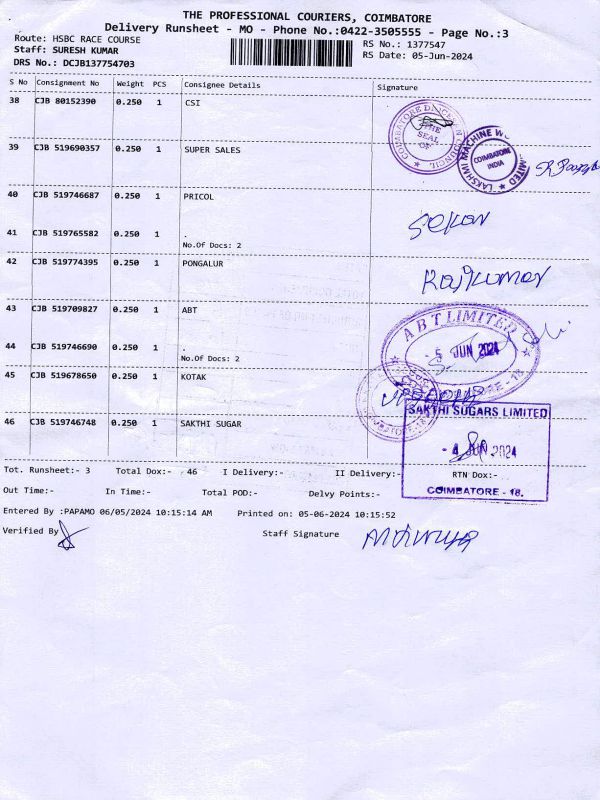 THE PROFESSIONAL COURIERS, COIMBATORE
Delivery Runsheet - MO - Phone No.:0422-3505555 - Page No.:3
Route: HSBC RACE COURSE
RS No.: 1377547
Staff: SURESH KUMAR
RS Date: 05-Jun-2024
DRS No.: DCJB137754703
S No Consignment No Weight PCS Consignee Details Signature
38 CJB 80152390 0.250 1 CSI
THE SEAL OF
39 CJB 519690357 0.250 1 SUPER SALES
LAKSHMI MACHINE LIMITED
COIMBATORE INDIA
40 CJB 519746687 0.250 1 PRICOL
Sekar
41 CJB 519765582 0.250 1 .
No.Of Docs: 2
42 CJB 519774395 0.250 1 PONGALUR
Rajkumar
43 CJB 519709827 0.250 1 ABT
A B T LIMITED
5 JUN 2024
44 CJB 519746690 0.250 1 .
No.Of Docs: 2
45 CJB 519678650 0.250 1 KOTAK
46 CJB 519746748 0.250 1 SAKTHI SUGAR
SAKTHI SUGARS LIMITED
- 4 JUN 2024
COIMBATORE - 18.
Tot. Runsheet:- 3 Total Dox:- 46 I Delivery:- II Delivery:- RTN Dox:-
Out Time:- In Time:- Total POD:- Delvy Points:-
Entered By :PAPAMO 06/05/2024 10:15:14 AM Printed on: 05-06-2024 10:15:52
Verified By
Staff Signature